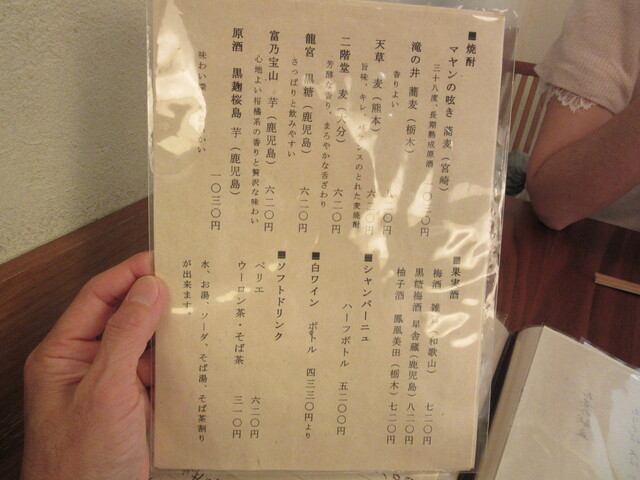 ■焼酎
マヤンの呟き 蕎麦(宮崎)
三十八度、長期熟成原酒 一〇三〇円
滝の井 蕎麦(栃木)
香りよい 円
天草 麦(熊本)
旨味、キレ のとれた麦焼酎 六二〇円
二階堂 麦(大分)
芳醇な香り、まろやかな舌ざわり 六二〇円
龍宮 黒糖(鹿児島)
さっぱりと飲みやすい 六二〇円
富乃宝山 芋(鹿児島)
心地よい柑橘系の香りと贅沢な味わい 六二〇円
原酒 黒麹桜島 芋(鹿児島)
味わい 一〇三〇円
■果実酒
梅酒 (和歌山) 七二〇円
黒糖梅酒 星舎蔵(鹿児島) 八二〇円
柚子酒 鳳凰美田(栃木) 七二〇円
■シャンパーニュ
ハーフボトル 五二〇〇円
■白ワイン ボトル 四三三〇円より
■ソフトドリンク
ペリエ 六二〇円
ウーロン茶・そば茶 三一〇円
水、お湯、ソーダ、そば湯、そば茶割り
が出来ます。